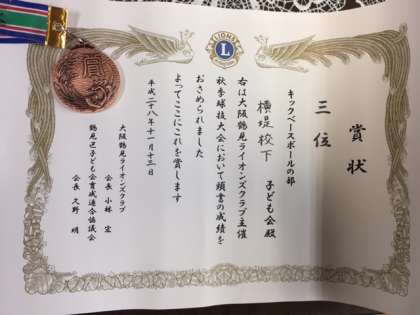 賞状
三位
キックベースボールの部
横堤校下 子ども会殿
右は大阪鶴見ライオンズクラブ主催
秋季球技大会において頭書の成績を
おさめられました
よってここにこれを賞します
平成二十八年十一月十三日
大阪鶴見ライオンズクラブ
会長 小林 宏
鶴見区子ども会育成連合協議会
会長 久野 明
LIONS
L
賞